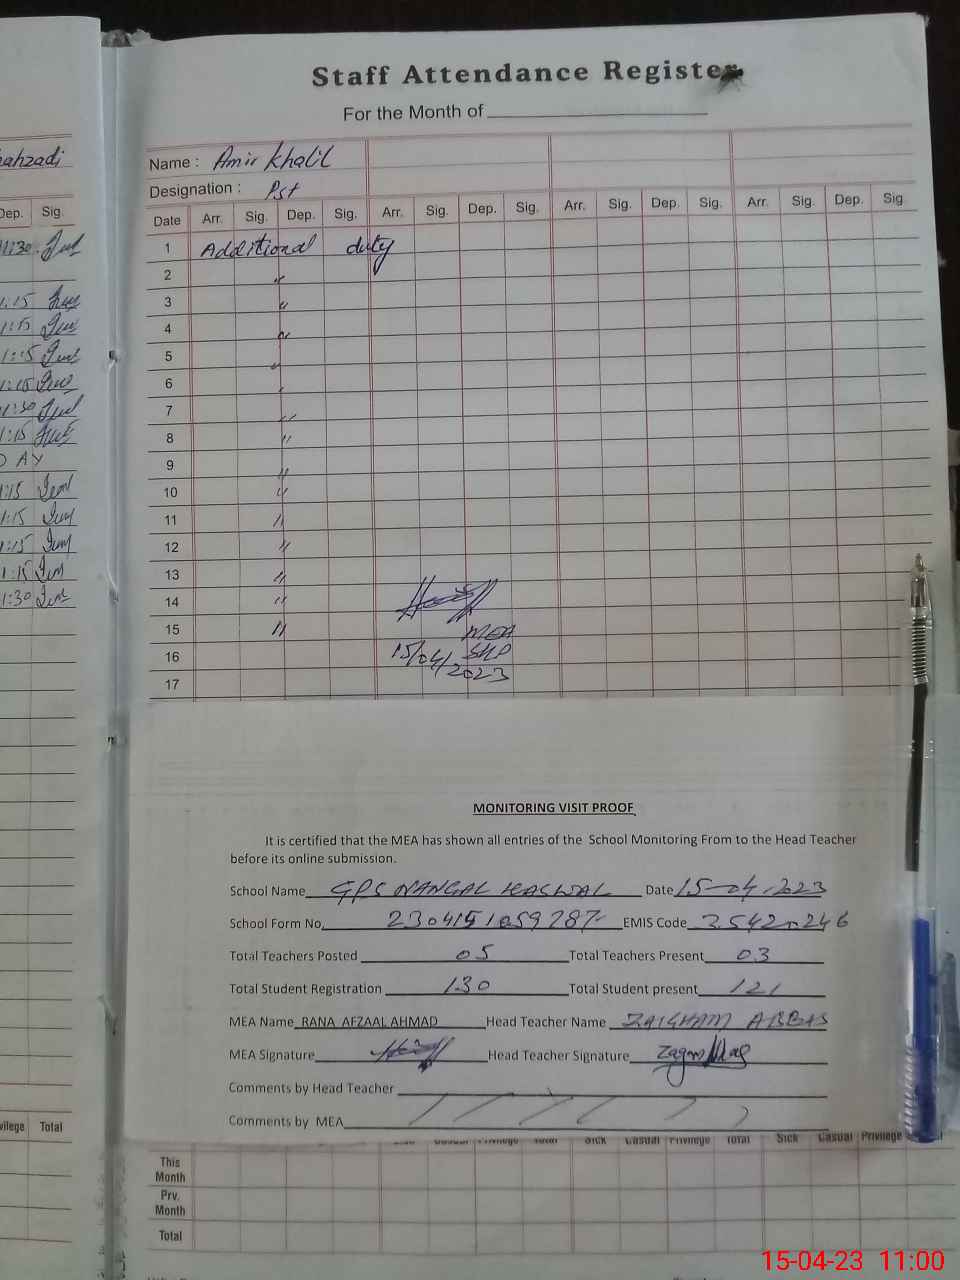 Staff Attendance Register
For the Month of
Name : Amir Khalil
Designation : Pst
Date Arr. Sig. Dep. Sig. Arr. Sig. Dep. Sig. Arr. Sig. Dep. Sig. Arr. Sig. Dep. Sig.
1 Additional duty
2 "
3 "
4 "
5 "
6 "
7 "
8 "
9 "
10 "
11 "
12 "
13 "
14 "
15 " MEA
16 15/04/2023 SKP
17
ahzadi
Dep. Sig.
11:30
1:15
1:15
1:15
1:15
1:30
1:15
DAY
1:15
1:15
1:15
1:15
1:30
MONITORING VISIT PROOF
It is certified that the MEA has shown all entries of the School Monitoring From to the Head Teacher
before its online submission.
School Name GPS NANGAL KASWAL Date 15-04-2023
School Form No. EMIS Code
Total Teachers Posted 05 Total Teachers Present 03
Total Student Registration 130 Total Student present 121
MEA Name RANA AFZAAL AHMAD Head Teacher Name ZAIGHAM ABBAS
MEA Signature Head Teacher Signature
Comments by Head Teacher
Comments by MEA
vilege Total
Casual Privilege Total Sick Casual Privilege Total Sick Casual Privilege
This Month
Prv. Month
Total
15-04-23 11:00